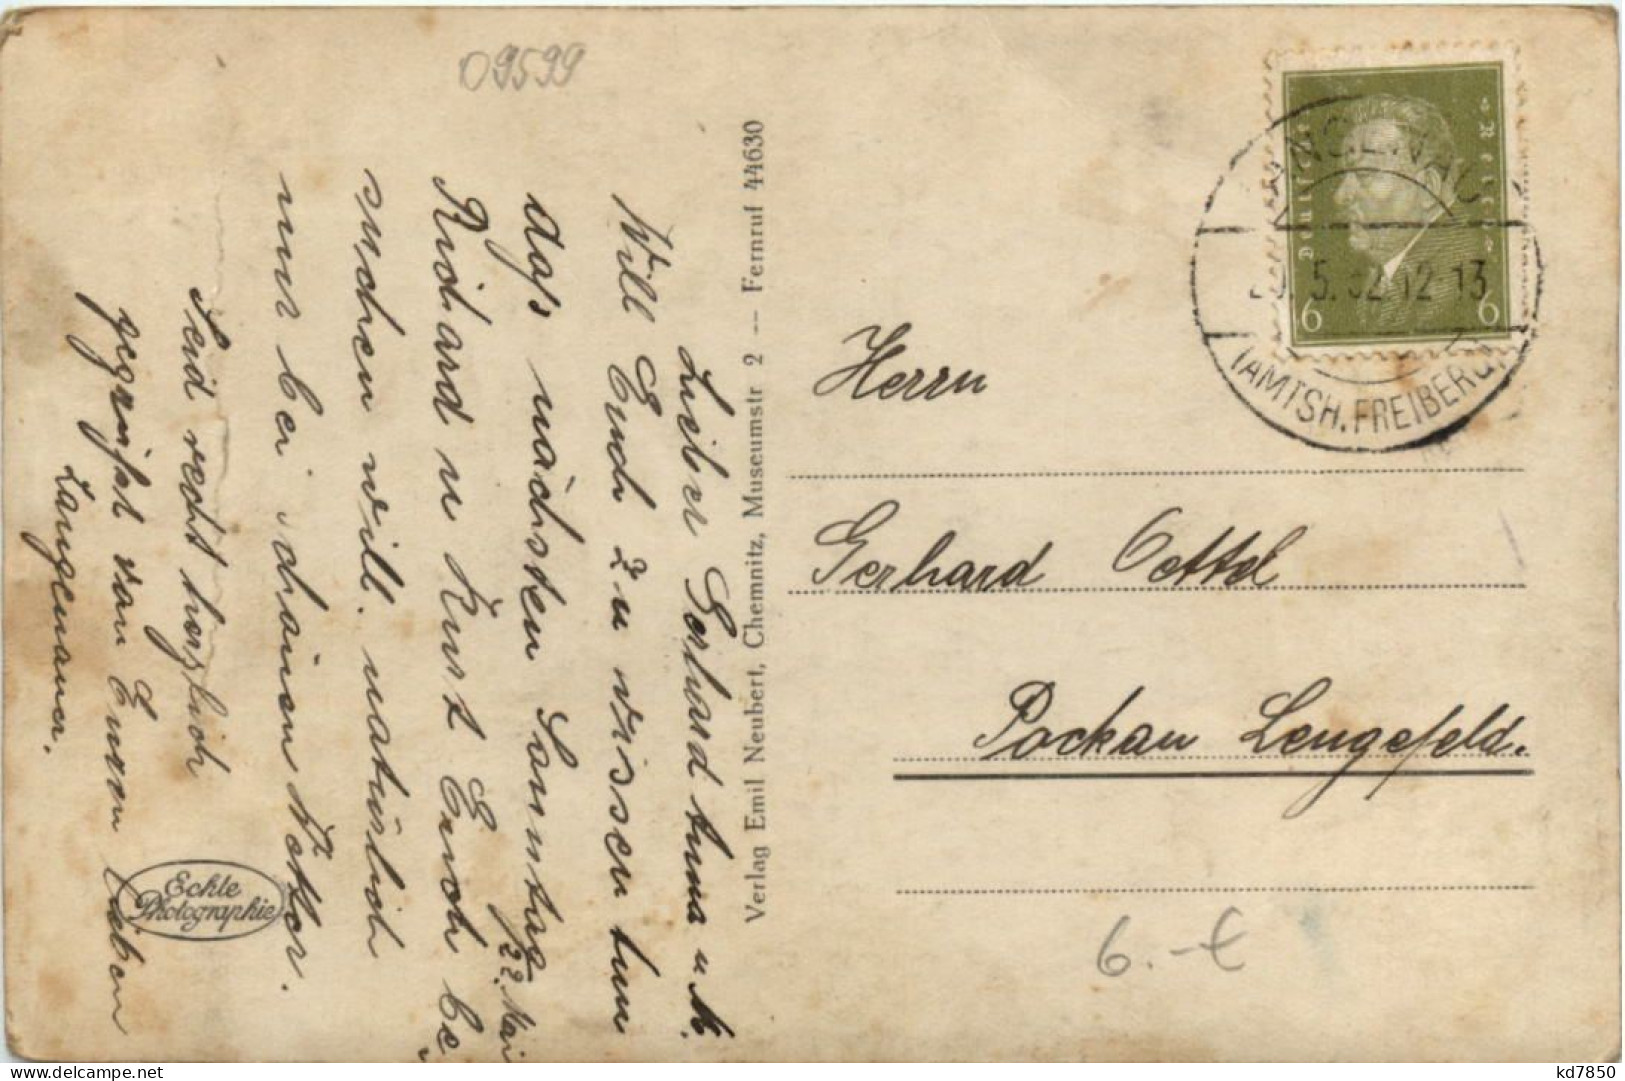 09599
Lieber Gerhard Anna u M.
Will Euch zu wissen tun
daſs nächsten Samstag
22. Mai
Richard u Kurt Euch be
suchen will. natürlich
nur bei schönem Wetter.
Seid recht herzlich
gegrüſst von Euern Lieben
Langenauer.
Echte
Photographie
Verlag Emil Neubert, Chemnitz, Museumstr 2 -- Fernruf 44630
Deutsches Reich
6 6
LANGENAU
5. 32 12-13
(AMTSH. FREIBERG)
Herrn
Gerhard Oettel
Pockau Lengefeld.
6.-€
kd7850